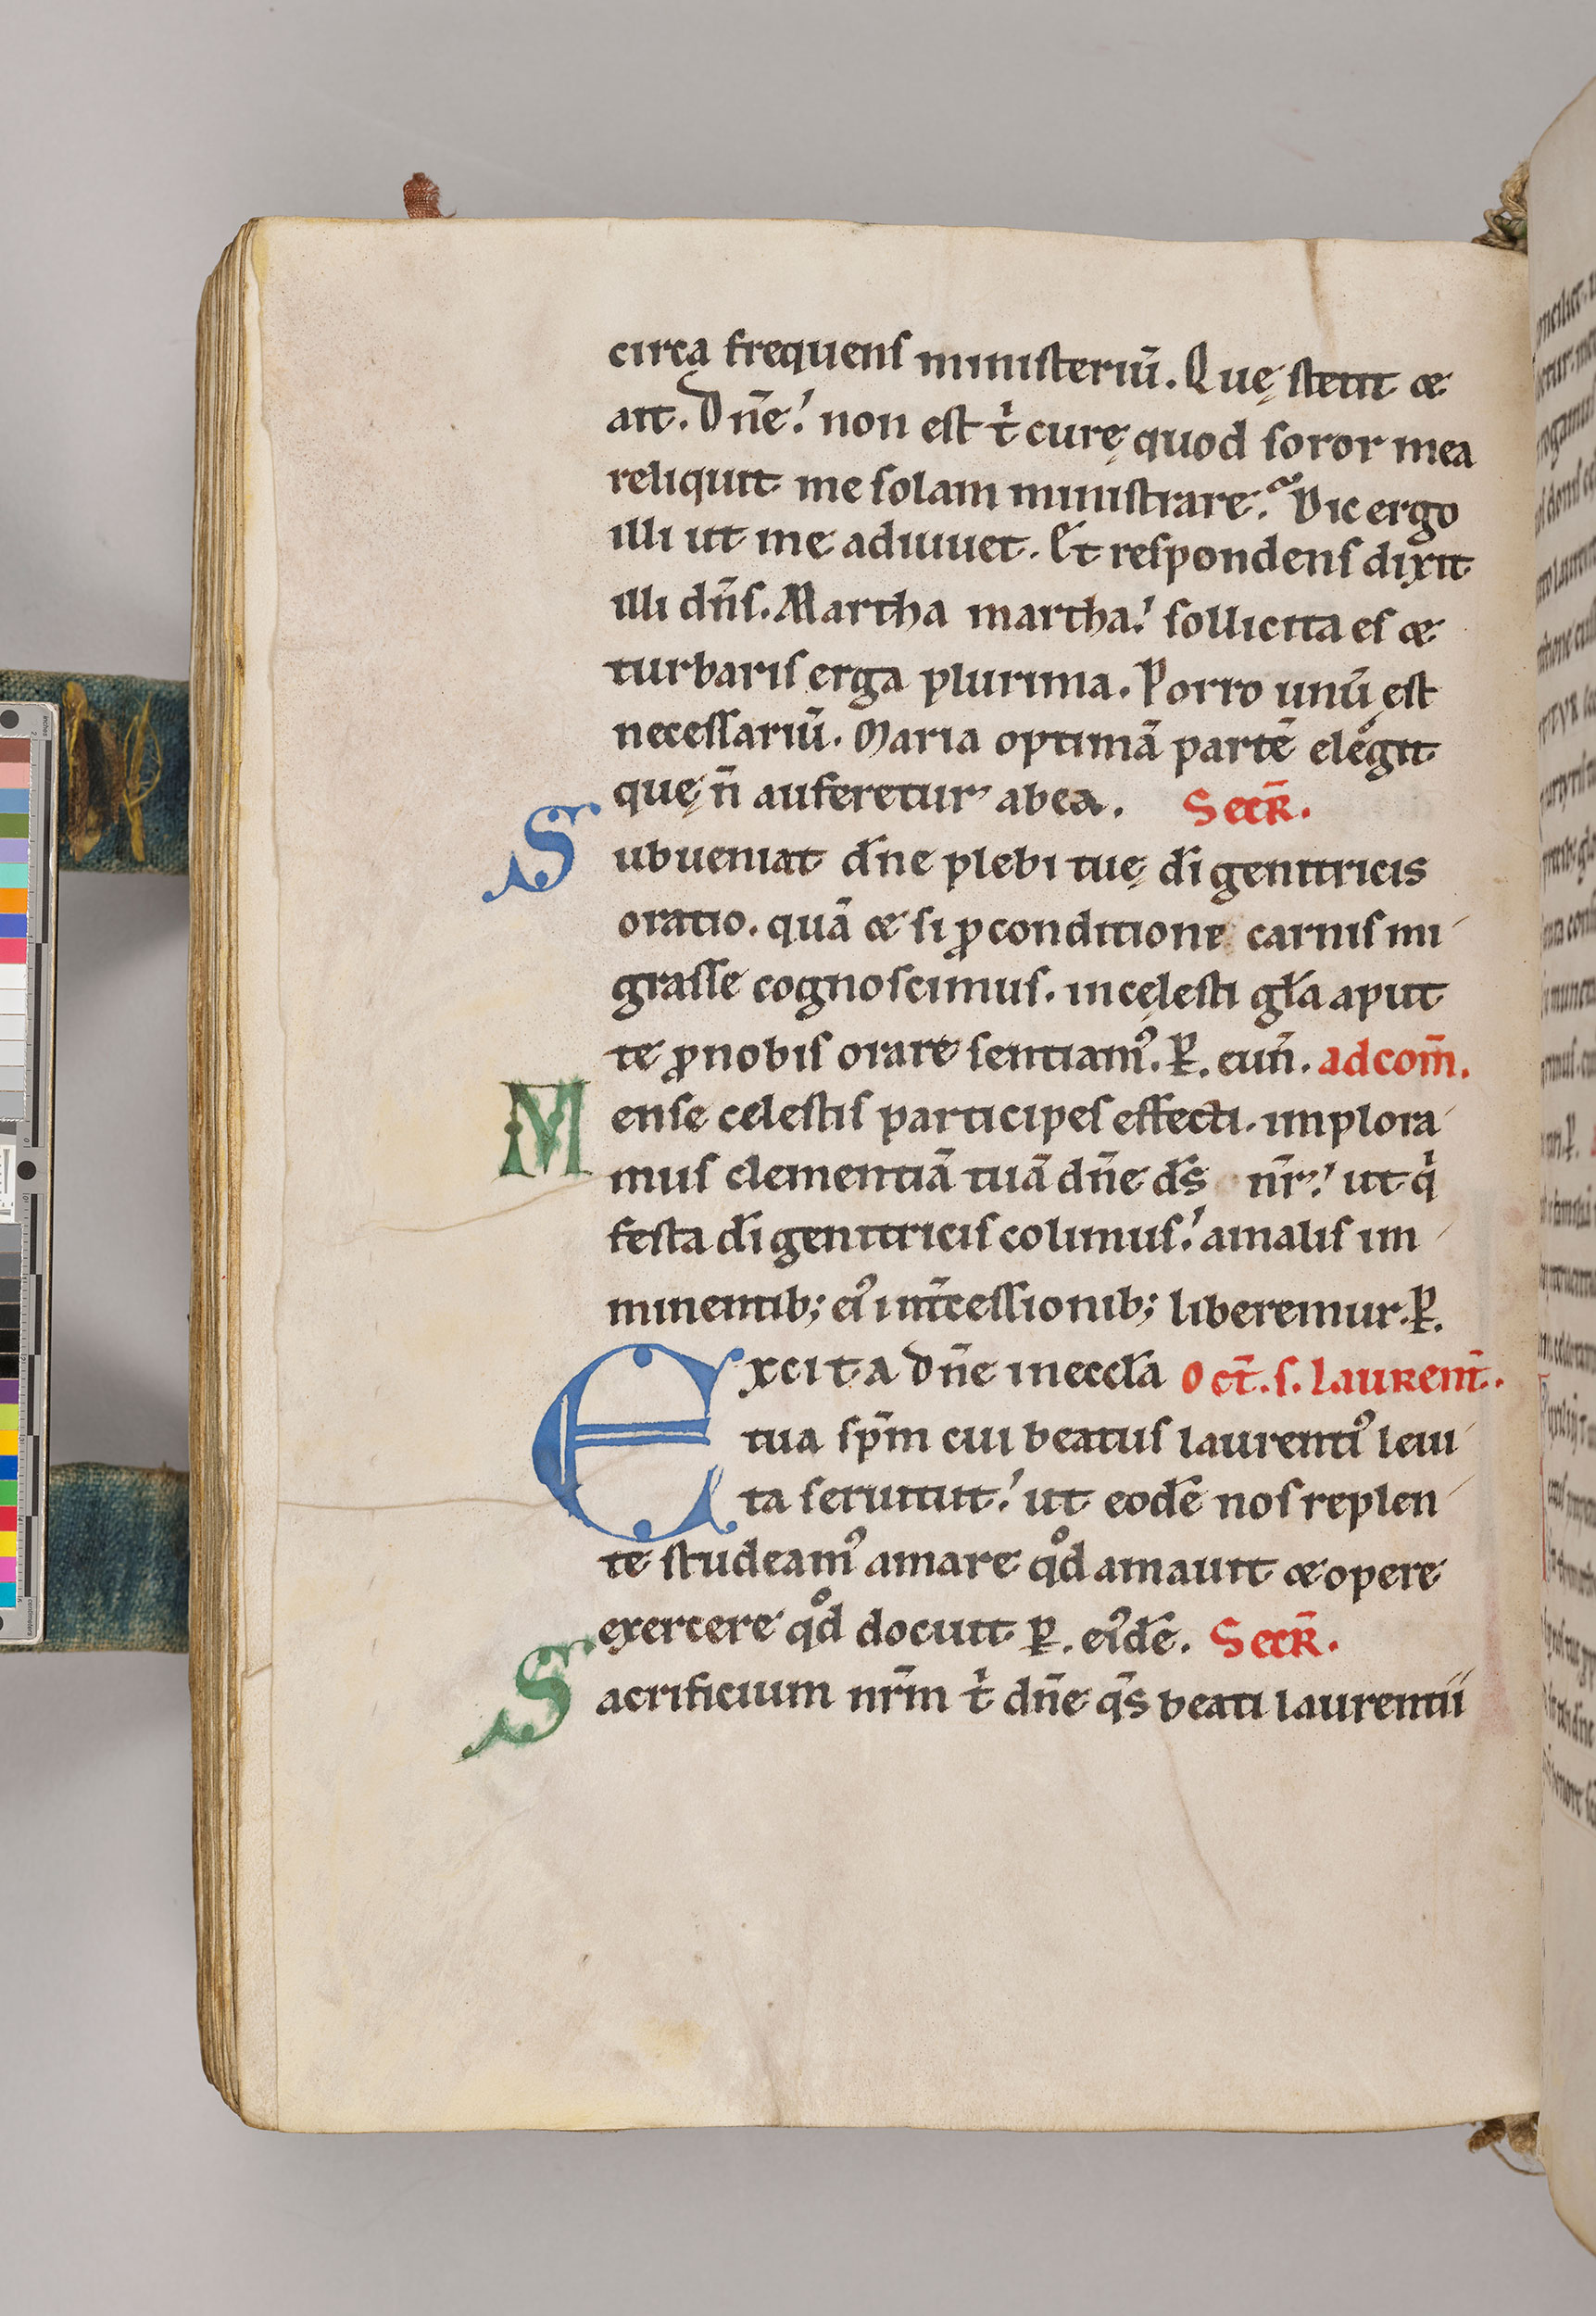 circa frequens ministeriū. Quę stetit &
ait. Dn̄e! non est t̍ curę quod soror mea
reliquit me solam ministrare? Dic ergo
illi ut me adiuuet. Et respondens dixit
illi dn̄s. Martha martha! sollicita es &
turbaris erga plurima. Porro unū est
necessariū. Maria optimā partē elegit
quę n̄ auferetur abea. Secr̄.
Subueniat dn̄e plebi tuę di̅ genitricis
oratio. quā & si ꝓconditione carnis mi
grasse cognoscimus. in cęlesti gl̄a aput
te ꝓnobis orare sentiamꝰ. P̲. eun̄. adcom̄.
Mense celestis participes effecti. implora
mus clementiā tuā dn̄e ds̄ nr̄! ut q̍
festa di̅ genitricis colimus! amalis im
minentib; eiꝰ int̄cessionib; liberemur. P̲.
Excita dn̄e in eccl̄a Oct̄. s. Laurent̄.
tua sp̄m cui beatus laurentiꝰ leui
ta seruiuit! ut eodē nos replen
te studeamꝰ amare qͦd amauit & opere
exercere qͦd docuit P̲. eiꝰdē. Secr̄.
Sacrificium nr̄m t̍ dn̄e qs̄ beati laurentii